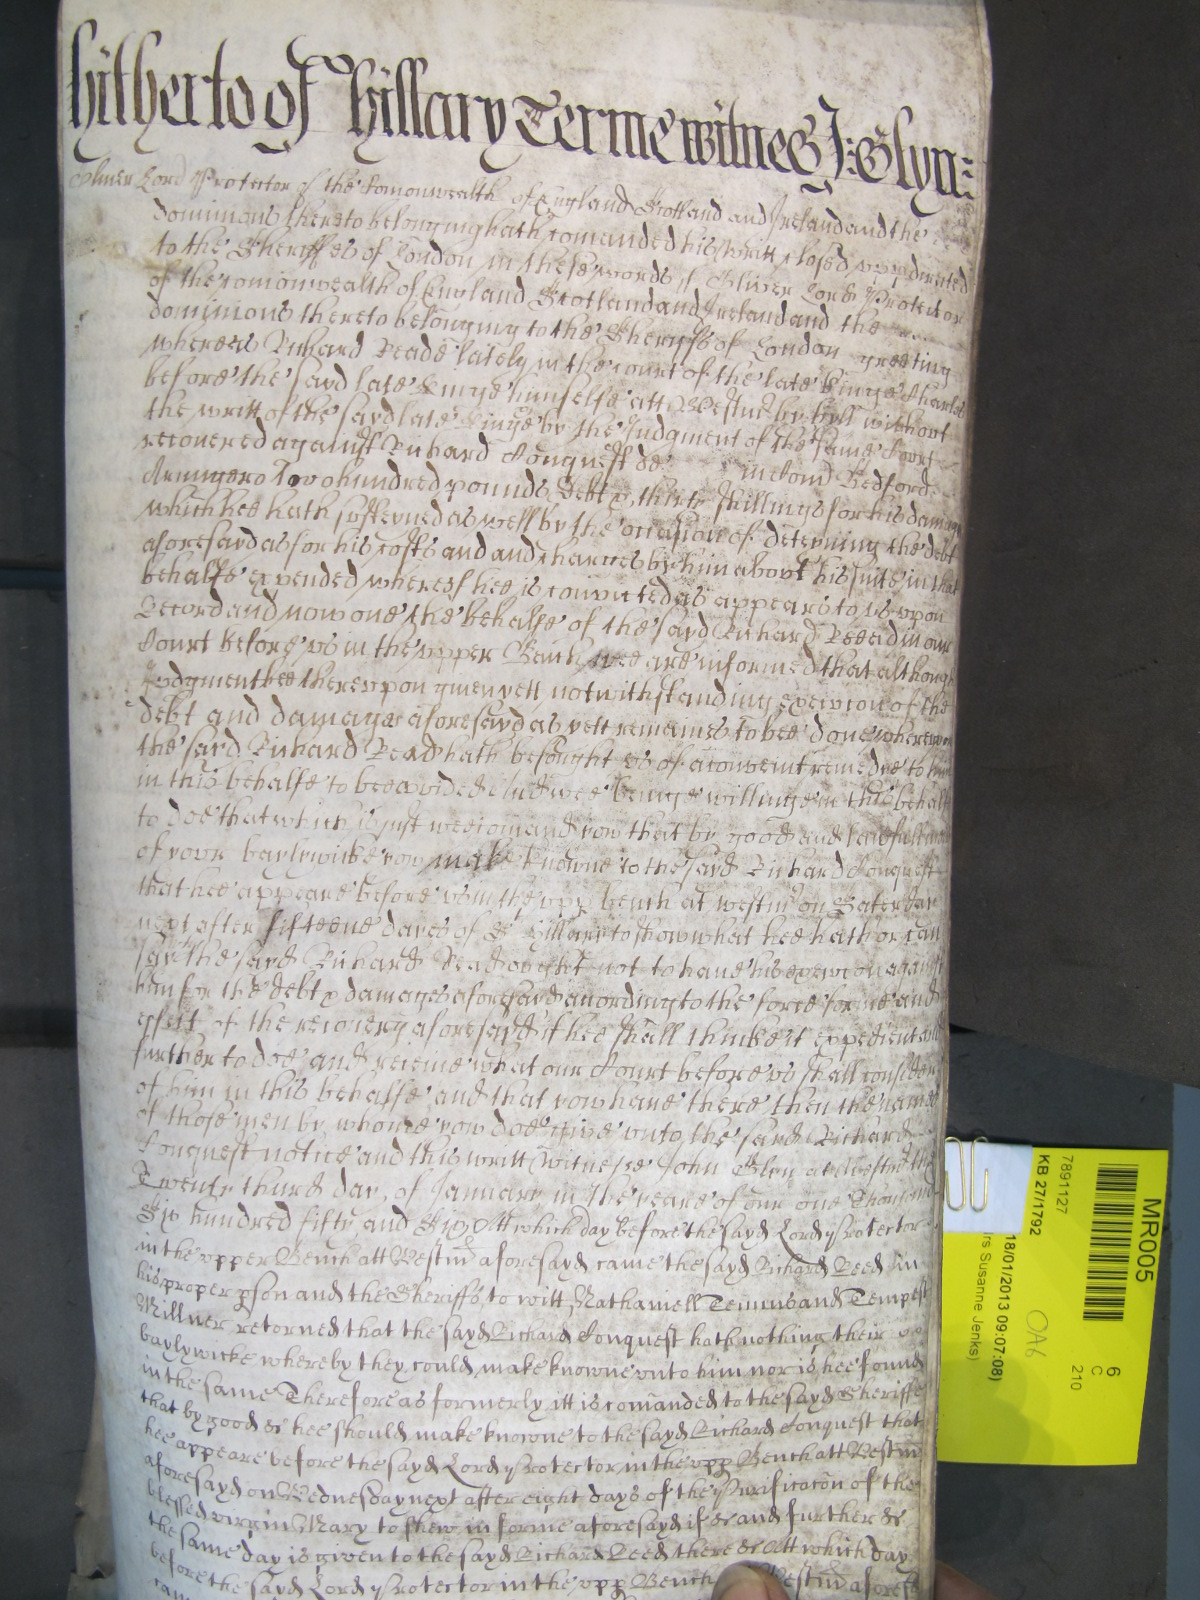 hitherto of Hillary Terme witnes J: Glyn:
Oliver Lord Protector of the Comonwealth of England Scotland and Ireland and the
dominions thereto belonging hath comanded his writt closed up directed
to the Sheriffes of London in these words ss Oliver Lord Protector
of the comonwealth of England Scotland and Ireland and the
dominions thereto belonging to the Sheriffs of London greeting
whereas Richard Reade lately in the court of the late Kinge Charles
before the sayd late Kinge himselfe att Westmr by bill without
the writt of the sayd late Kinge by the Judgment of the same Court
recovered against Richard Conquest de in Com Bedford
Armigero Two hundred pounds debt & thirty shillings for his damages
which hee hath susteyned as well by the occasion of deteyning the debt
aforesayd as for his costs and and charges by him about his suite in that
behalfe expended whereof hee is convicted as appears to us upon
Record and now one the behalfe of the sayd Richard Reead in our
Court before us in the upper Bench wee are informed that although
Judgment bee thereupon given yett notwithstanding execucon of the
debt and damages aforesayd as yett remaines to bee done whereupon
the sayd Richard Read hath besought us of a convenient remedye to him
in this behalfe to bee provided And wee beinge willinge in this behalfe
to doe that which is just wee comand you that by good and lawfull men
of your baylywicke you make knowne to the sayd Richard Conquest
that hee appeare before us in the upp bench at Westmr on Saterday
next after fifteene dayes of St Hillary to show what hee hath or can
say why the sayd Richard Read ought not to have his execucon against
him for the debt & damages aforesayd according to the force forme and
effect of the recovery aforesayd if hee shall thinke it expedient and
further to doe and receive what our Court before us shall consider
of him in this behalfe and that you have there then the names
of those men by whome you doe give unto the sayd Richard
Conquest notice and this writt Witnesse John Glyn at Westmr the
Twenty third day of January in the yeare of our one Thousand
Six hundred fifty and Six Att which day before the sayd Lord Protector
in the upper Bench att Westmr aforesayd came the sayd Richard Reed in
his proper pson and the Sheriffs to witt Nathaniell Temms and Tempest
Millner retorned that the sayd Richard Conquest hath nothing their
baylywicke whereby they could make knowne unto him nor is hee found
in the same Therefore as formerly itt is comanded to the sayd Sheriffe
that by good &c hee should make knowne to the sayd Richard Conquest that
hee appeare before the sayd Lord Protector in the upp Bench att Westmr
aforesayd on Wednesday next after eight days of the Purificacon of the
blessed virgin Mary to shew in forme aforesayd if &c and further &c
the same day is given to the sayd Richard Reed there &c Att which day
before the sayd Lord Protector in the upp Bench Westmr aforesd
MR005
6
C
210
7891127
KB 27/1792
OA6
18/01/2013 09:07:08)
rs Susanne Jenks)